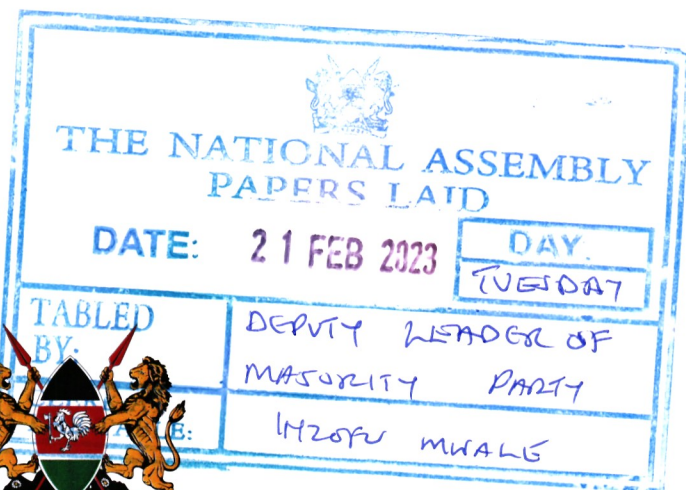 THE NATIONAL ASSEMBLY
PAPERS LAID
DATE: 21 FEB 2023
DAY.
TUESDAY
TABLED
BY:
DEPUTY LEADER OF
MAJORITY PARTY
MWALE